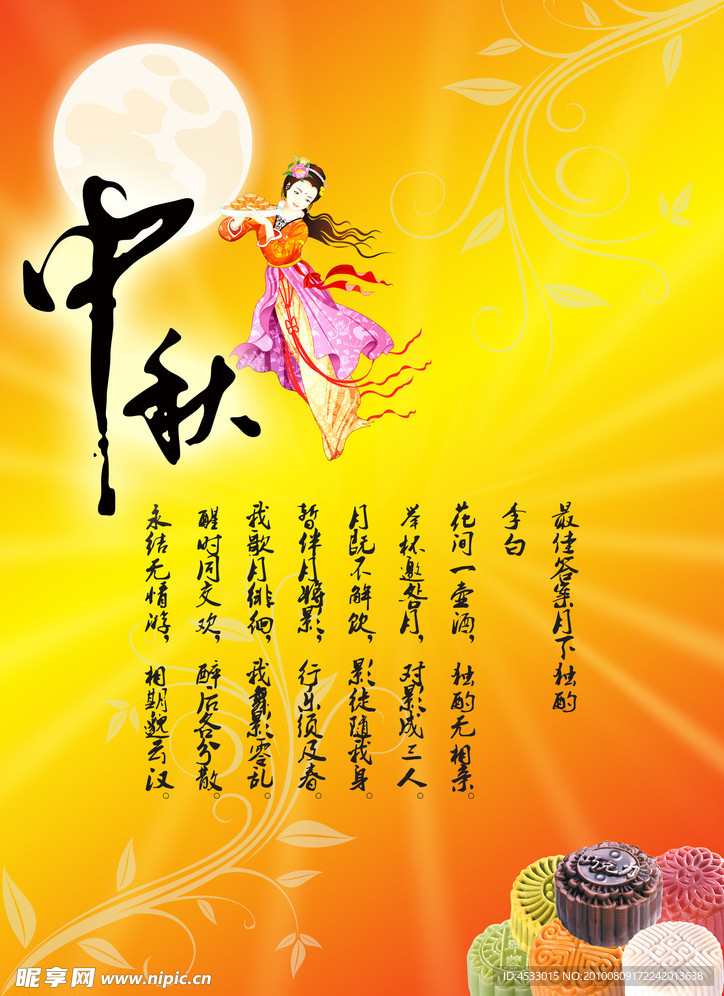 中秋
最佳答案月下独酌
李白
花间一壶酒，独酌无相亲。
举杯邀明月，对影成三人。
月既不解饮，影徒随我身。
暂伴月将影，行乐须及春。
我歌月徘徊，我舞影零乱。
醒时同交欢，醉后各分散。
永结无情游，相期邈云汉。
巧克力
昵享网 www.nipic.cn
ID:4533015 NO:20100809172242013638